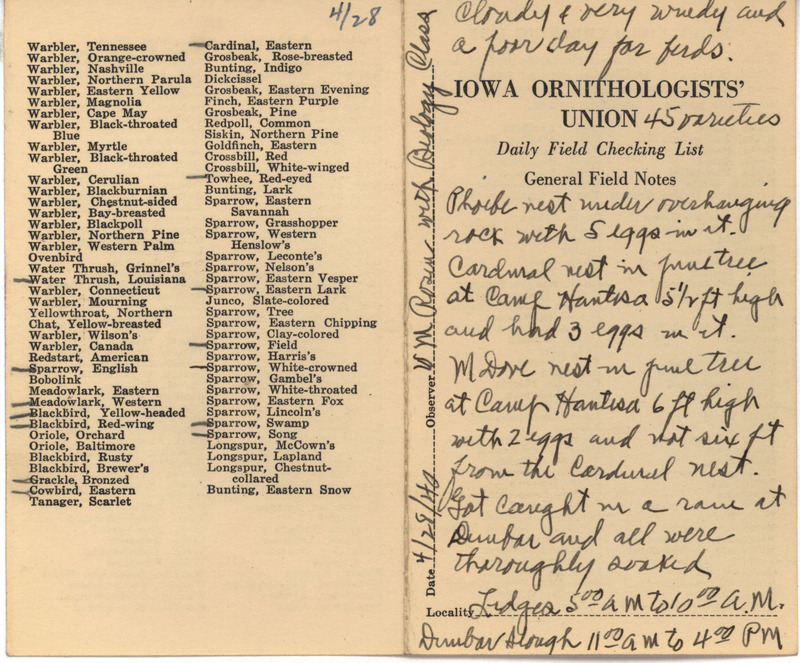 4/28
Warbler, Tennessee
Warbler, Orange-crowned
Warbler, Nashville
Warbler, Northern Parula
Warbler, Eastern Yellow
Warbler, Magnolia
Warbler, Cape May
Warbler, Black-throated
Blue
Warbler, Myrtle
Warbler, Black-throated
Green
Warbler, Cerulian
Warbler, Blackburnian
Warbler, Chestnut-sided
Warbler, Bay-breasted
Warbler, Blackpoll
Warbler, Northern Pine
Warbler, Western Palm
Ovenbird
Water Thrush, Grinnel's
Water Thrush, Louisiana
Warbler, Connecticut
Warbler, Mourning
Yellowthroat, Northern
Chat, Yellow-breasted
Warbler, Wilson's
Warbler, Canada
Redstart, American
Sparrow, English
Bobolink
Meadowlark, Eastern
Meadowlark, Western
Blackbird, Yellow-headed
Blackbird, Red-wing
Oriole, Orchard
Oriole, Baltimore
Blackbird, Rusty
Blackbird, Brewer's
Grackle, Bronzed
Cowbird, Eastern
Tanager, Scarlet
Cardinal, Eastern
Grosbeak, Rose-breasted
Bunting, Indigo
Dickcissel
Grosbeak, Eastern Evening
Finch, Eastern Purple
Grosbeak, Pine
Redpoll, Common
Siskin, Northern Pine
Goldfinch, Eastern
Crossbill, Red
Crossbill, White-winged
Towhee, Red-eyed
Bunting, Lark
Sparrow, Eastern
Savannah
Sparrow, Grasshopper
Sparrow, Western
Henslow's
Sparrow, Leconte's
Sparrow, Nelson's
Sparrow, Eastern Vesper
Sparrow, Eastern Lark
Junco, Slate-colored
Sparrow, Tree
Sparrow, Eastern Chipping
Sparrow, Clay-colored
Sparrow, Field
Sparrow, Harris's
Sparrow, White-crowned
Sparrow, Gambel's
Sparrow, White-throated
Sparrow, Eastern Fox
Sparrow, Lincoln's
Sparrow, Swamp
Sparrow, Song
Longspur, McCown's
Longspur, Lapland
Longspur, Chestnut-
collared
Bunting, Eastern Snow
Date 4/28/40 Observer M Rosene with Biology Class
cloudy & very windy and
a poor day for birds.
IOWA ORNITHOLOGISTS'
UNION 45 varieties
Daily Field Checking List
General Field Notes
Phoebe nest under overhanging
rock with 5 eggs in it.
Cardinal nest in pine tree
at Camp Hantesa 5 1/2 ft high
and had 3 eggs in it.
M Dove nest in pine tree
at Camp Hantesa 6 ft high
with 2 eggs and not six ft
from the Cardinal nest.
Got caught in a rain at
Dunbar and all were
thoroughly soaked
Locality Ledges 5 00 a M to 10 00 A.M.
Dunbar Slough 11 00 a M to 4 00 PM